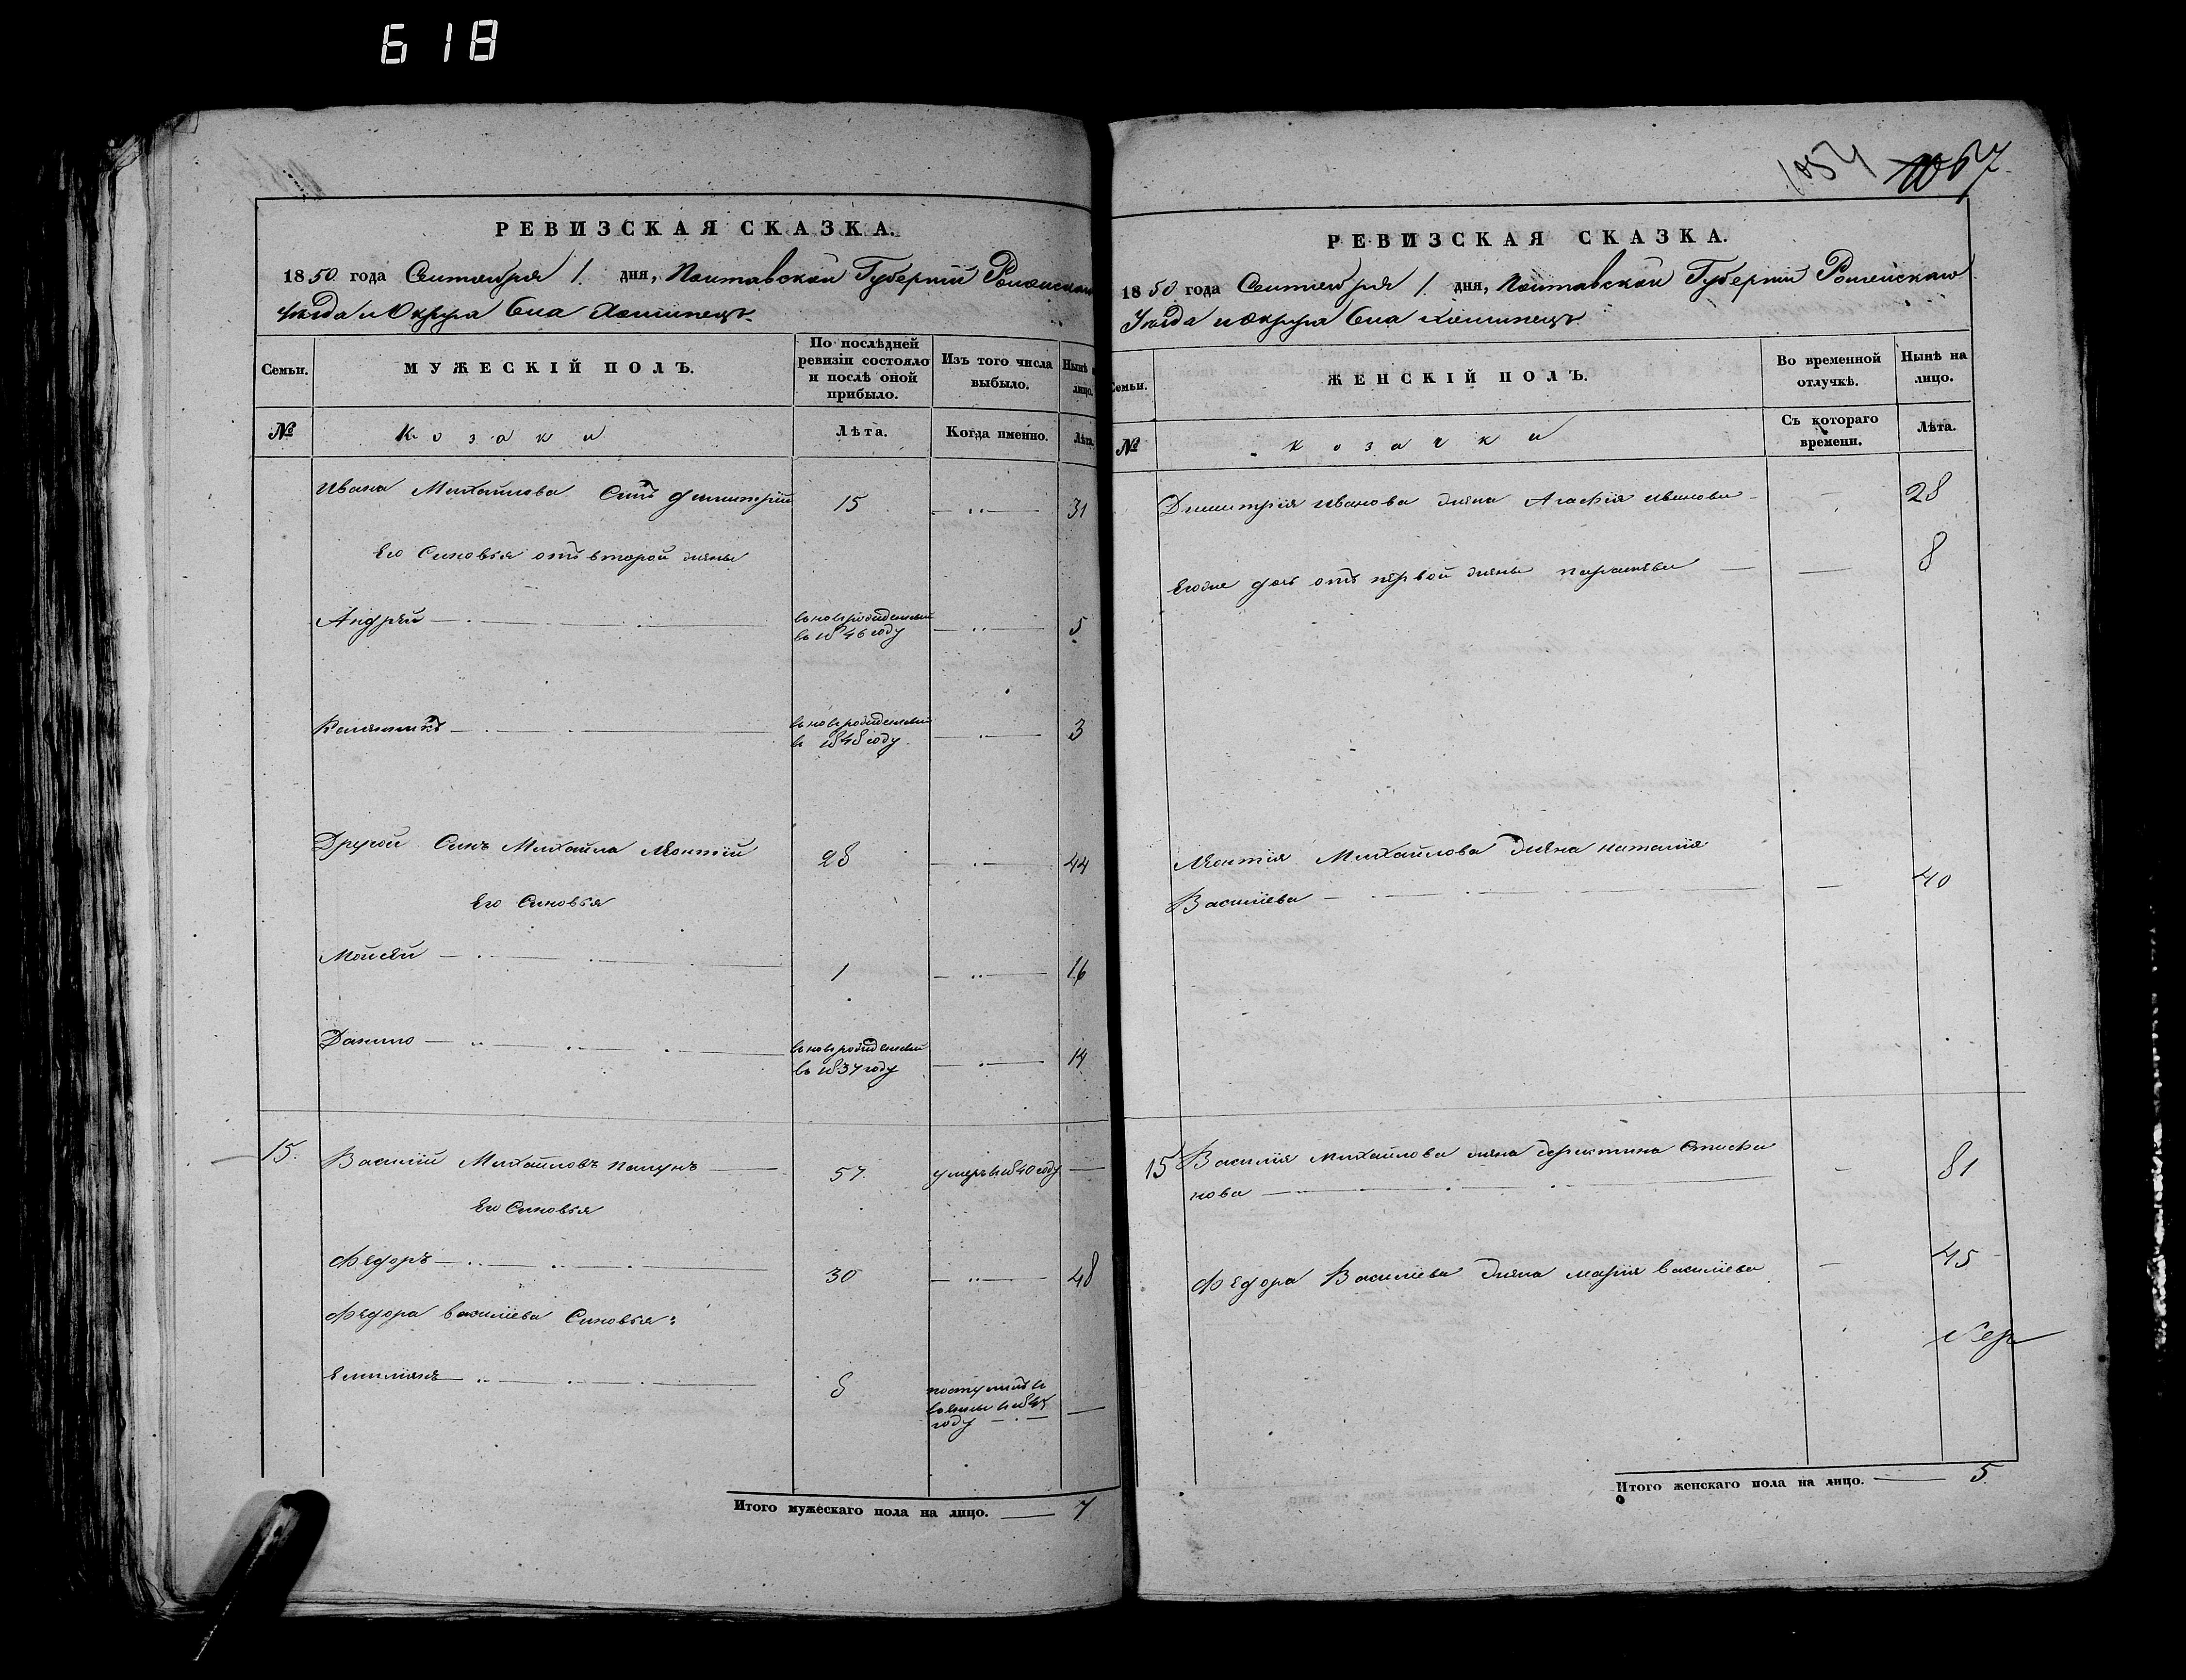 618
РЕВИЗСКАЯ СКАЗКА.
1850 года Сентября 1. дня, Полтавской Губерніи Роменскаго
Уезда и Округа Села
Семьи.
МУЖЕСКІЙ ПОЛЪ.
По послѣдней ревизіи состояло и послѣ оной прибыло.
Изъ того числа выбыло.
Нынѣ на лицо.
№
Козаки
Лѣта.
Когда именно.
Лѣта.
Ивана Михайлова Синъ Димитрій 15 31
Его Синовья отъ второй жены
Андрей вновь рожденный в 1846 году 5
вновь рожденный в 1848 году 3
Другой Синъ Михайла Леонтій 28 44
Его Синовья
Мойсей 1 16
Данило вновь рожденный в 1837 году 14
15. Василій Михайловъ 57. умеръ в 1840 году
Его Синовья
Федоръ 30 48
Федора Василіева Синовья:
Емиліянъ 8 году
Итого мужескаго пола на лицо. 7
1054 1067
РЕВИЗСКАЯ СКАЗКА.
1850 года Сентября 1. дня, Полтавской Губерніи Роменскаго
Уезда и Округа Села
Семьи.
ЖЕНСКІЙ ПОЛЪ.
Во временной отлучкѣ.
Нынѣ на лицо.
№
Козачки
Съ котораго времени.
Лѣта.
Димитрія Иванова жена Агафія Иванова 28
Егоже дочь отъ первой жены Параскева 8
Леонтія Михайлова жена Наталія
Василіева 40
15 Василія Михайлова жена Стефа
нова 81
Федора Василіева жена Марія Василіева 45
Итого женскаго пола на лицо. 5